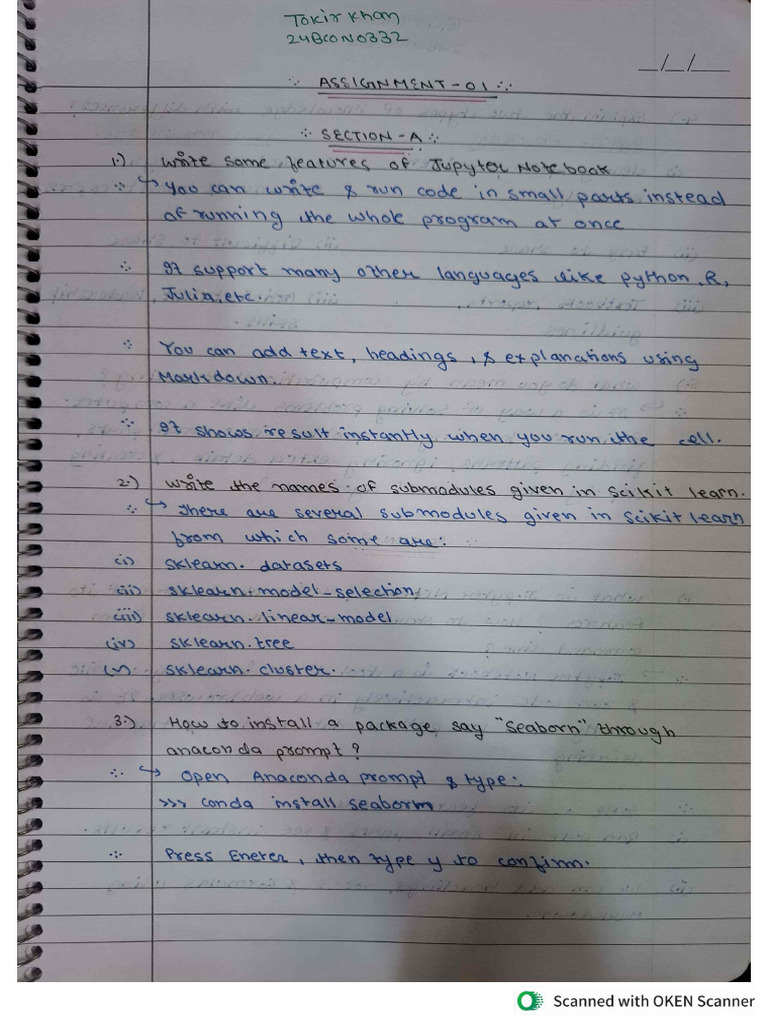 Tokir khan
24BCON0332
__/__/____
∵ ASSIGNMENT-01 ∵
∴ SECTION-A ∴
1.) Write some features of Jupyter Notebook
∴ ↳ You can write & run code in small parts instead
of running the whole program at once
∴ It support many other languages like python, R,
Julia, etc.
∴ You can add text, headings, & explanations using
Markdown.
∴ It shows result instantly when you run the cell.
2.) Write the names of submodules given in scikit learn.
∴ ↳ there are several submodules given in scikit learn
from which some are:
(i) sklearn. datasets
(ii) sklearn. model-selection
(iii) sklearn. linear-model
(iv) sklearn. tree
(v) sklearn. cluster.
3.) How to install a package, say "Seaborn" through
anaconda prompt?
∴ ↳ Open Anaconda prompt & type:
>>> conda install seaborn
∴ Press Eneter, then type y to confirm.
Scanned with OKEN Scanner